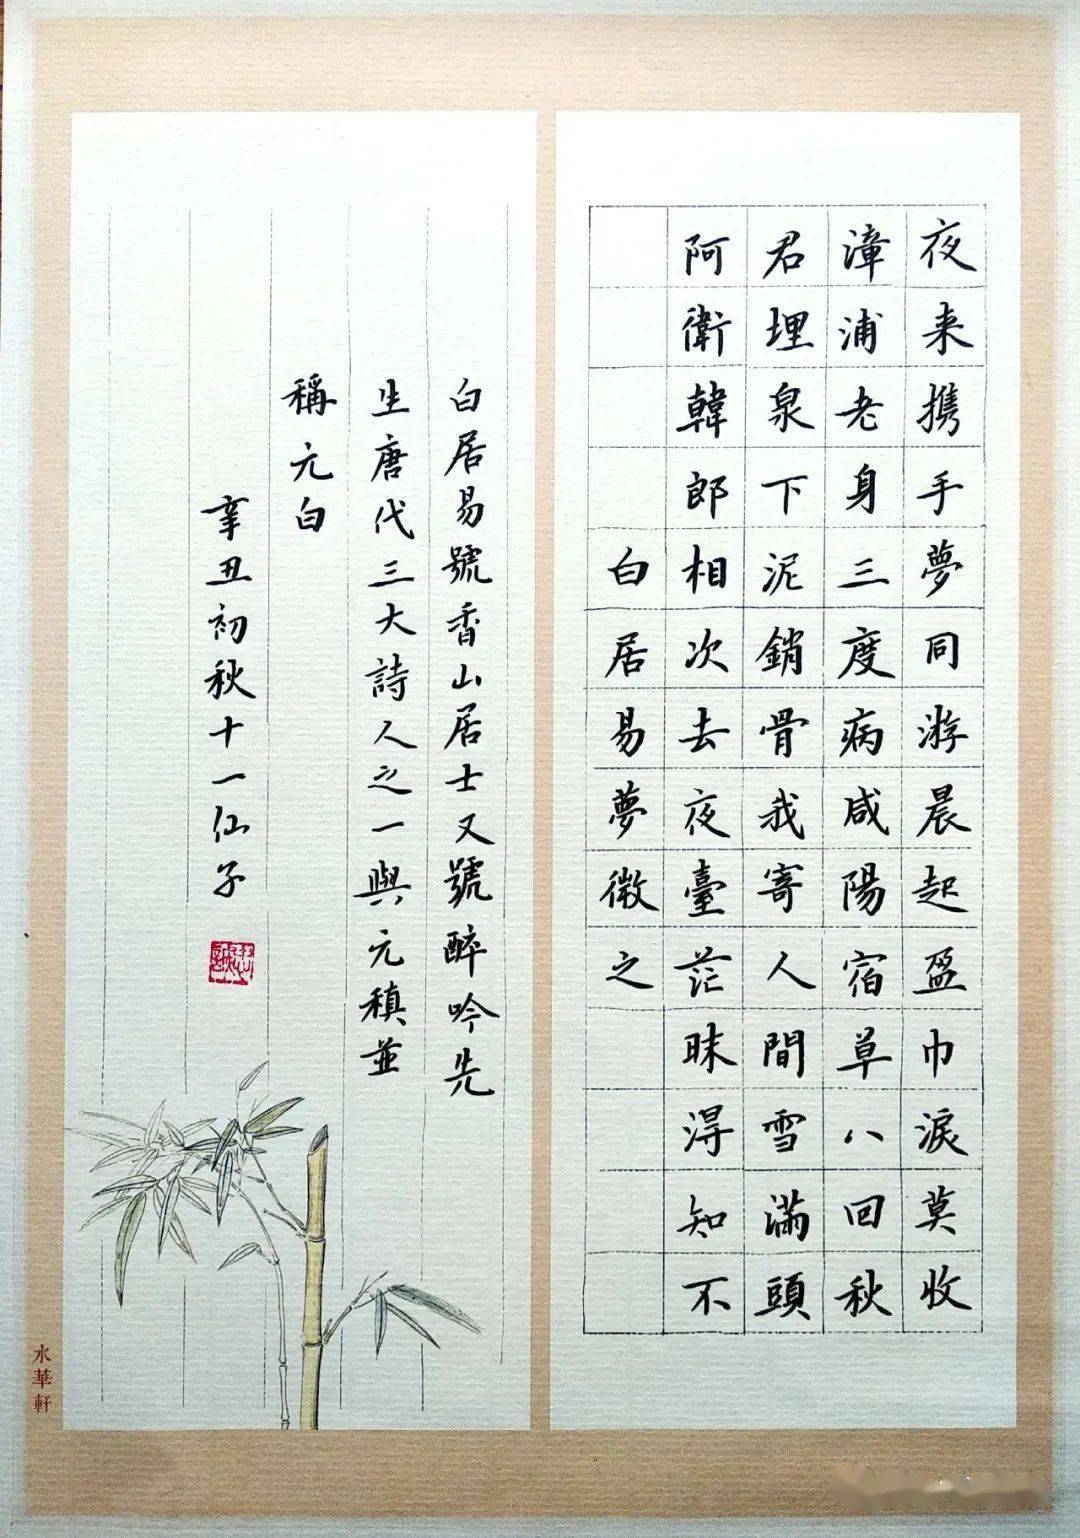 夜来携手夢同游晨起盈巾淚莫收
漳浦老身三度病咸陽宿草八回秋
君埋泉下泥銷骨我寄人間雪滿頭
阿衛韓郎相次去夜臺茫昧得知不
白居易夢微之
白居易號香山居士又號醉吟先
生唐代三大詩人之一與元稹並
稱元白
辛丑初秋十一仙子
水華軒